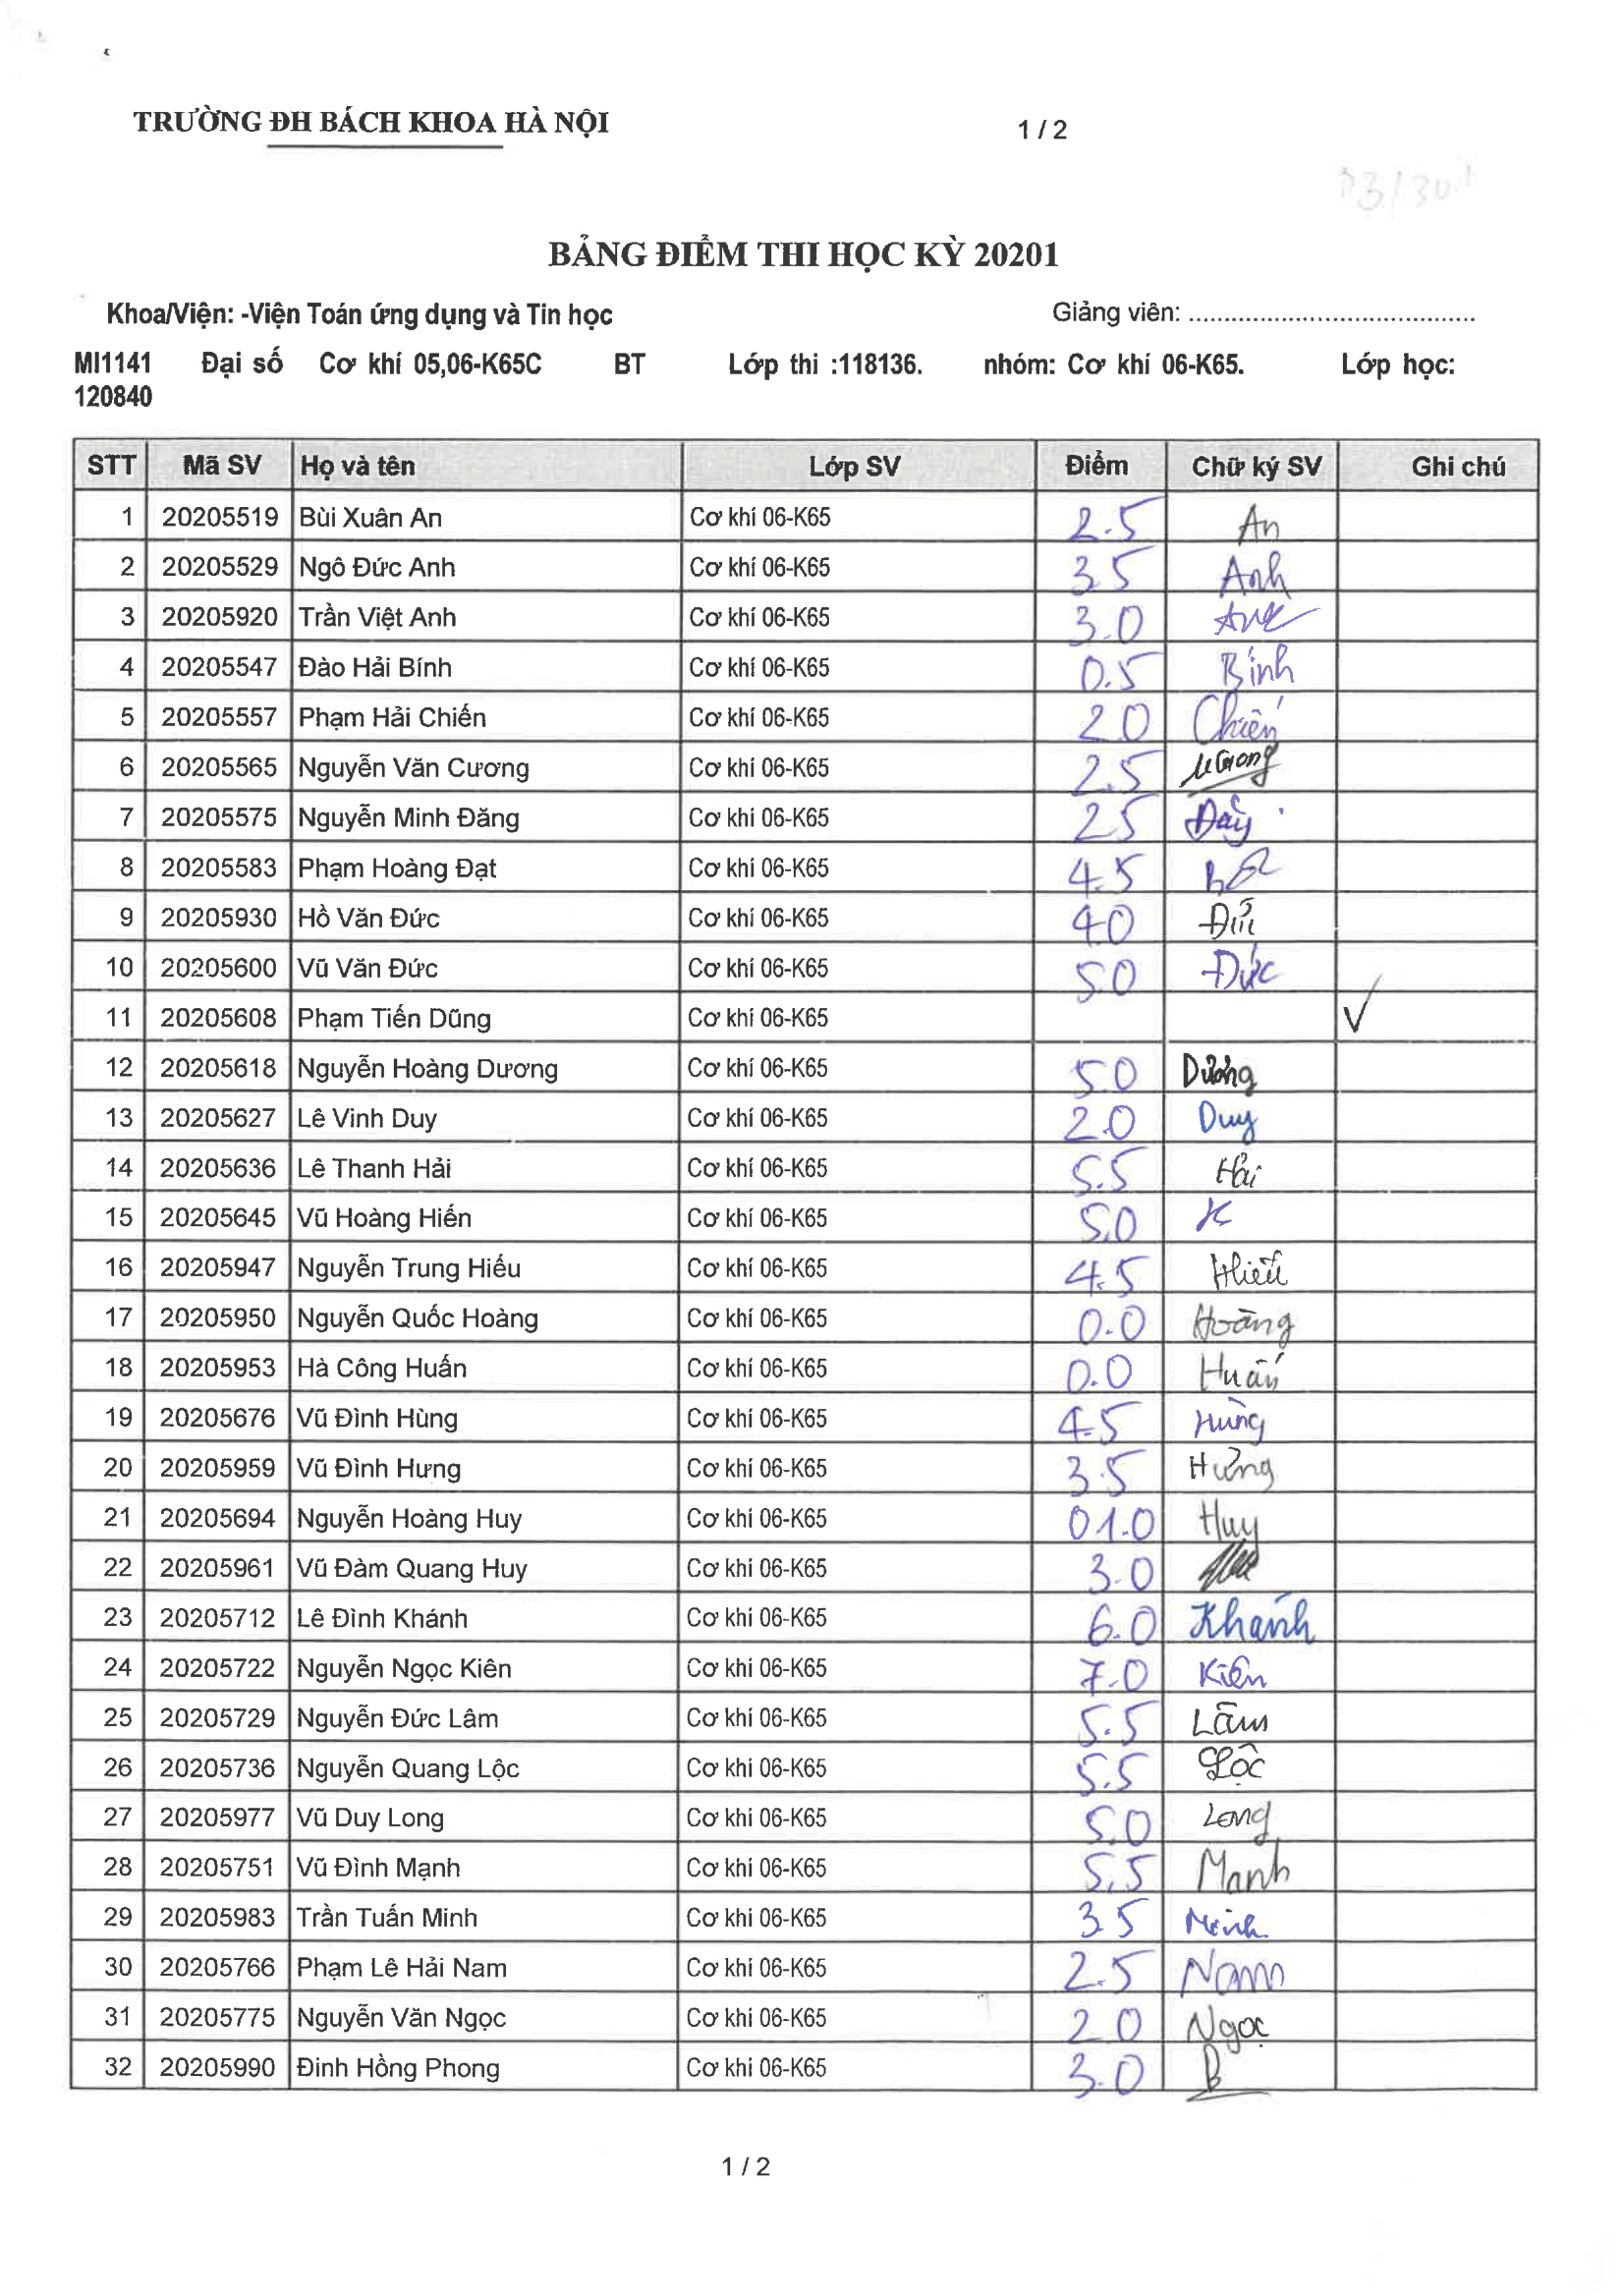 TRƯỜNG ĐH BÁCH KHOA HÀ NỘI 1 / 2
BẢNG ĐIỂM THI HỌC KỲ 20201
Khoa/Viện: -Viện Toán ứng dụng và Tin học Giảng viên: ........................................
MI1141 Đại số Cơ khí 05,06-K65C BT Lớp thi :118136. nhóm: Cơ khí 06-K65. Lớp học:
120840
STT Mã SV Họ và tên Lớp SV Điểm Chữ ký SV Ghi chú
1 20205519 Bùi Xuân An Cơ khí 06-K65 2.5 An
2 20205529 Ngô Đức Anh Cơ khí 06-K65 3.5 Anh
3 20205920 Trần Việt Anh Cơ khí 06-K65 3.0 Anh
4 20205547 Đào Hải Bính Cơ khí 06-K65 0.5 Bính
5 20205557 Phạm Hải Chiến Cơ khí 06-K65 2.0 Chiến
6 20205565 Nguyễn Văn Cương Cơ khí 06-K65 2.5
7 20205575 Nguyễn Minh Đăng Cơ khí 06-K65 2.5
8 20205583 Phạm Hoàng Đạt Cơ khí 06-K65 4.5
9 20205930 Hồ Văn Đức Cơ khí 06-K65 4.0
10 20205600 Vũ Văn Đức Cơ khí 06-K65 5.0 Đức
11 20205608 Phạm Tiến Dũng Cơ khí 06-K65 V
12 20205618 Nguyễn Hoàng Dương Cơ khí 06-K65 5.0 Dương
13 20205627 Lê Vinh Duy Cơ khí 06-K65 2.0 Duy
14 20205636 Lê Thanh Hải Cơ khí 06-K65 5.5 Hải
15 20205645 Vũ Hoàng Hiến Cơ khí 06-K65 5.0
16 20205947 Nguyễn Trung Hiếu Cơ khí 06-K65 4.5 Hiếu
17 20205950 Nguyễn Quốc Hoàng Cơ khí 06-K65 0.0 Hoàng
18 20205953 Hà Công Huấn Cơ khí 06-K65 0.0 Huấn
19 20205676 Vũ Đình Hùng Cơ khí 06-K65 4.5 Hùng
20 20205959 Vũ Đình Hưng Cơ khí 06-K65 3.5 Hưng
21 20205694 Nguyễn Hoàng Huy Cơ khí 06-K65 01.0 Huy
22 20205961 Vũ Đàm Quang Huy Cơ khí 06-K65 3.0
23 20205712 Lê Đình Khánh Cơ khí 06-K65 6.0 Khánh
24 20205722 Nguyễn Ngọc Kiên Cơ khí 06-K65 7.0 Kiên
25 20205729 Nguyễn Đức Lâm Cơ khí 06-K65 5.5 Lâm
26 20205736 Nguyễn Quang Lộc Cơ khí 06-K65 5.5 Lộc
27 20205977 Vũ Duy Long Cơ khí 06-K65 5.0 Long
28 20205751 Vũ Đình Mạnh Cơ khí 06-K65 5.5 Manh
29 20205983 Trần Tuấn Minh Cơ khí 06-K65 3.5 Minh
30 20205766 Phạm Lê Hải Nam Cơ khí 06-K65 2.5 Nam
31 20205775 Nguyễn Văn Ngọc Cơ khí 06-K65 2.0 Ngọc
32 20205990 Đinh Hồng Phong Cơ khí 06-K65 3.0
1 / 2